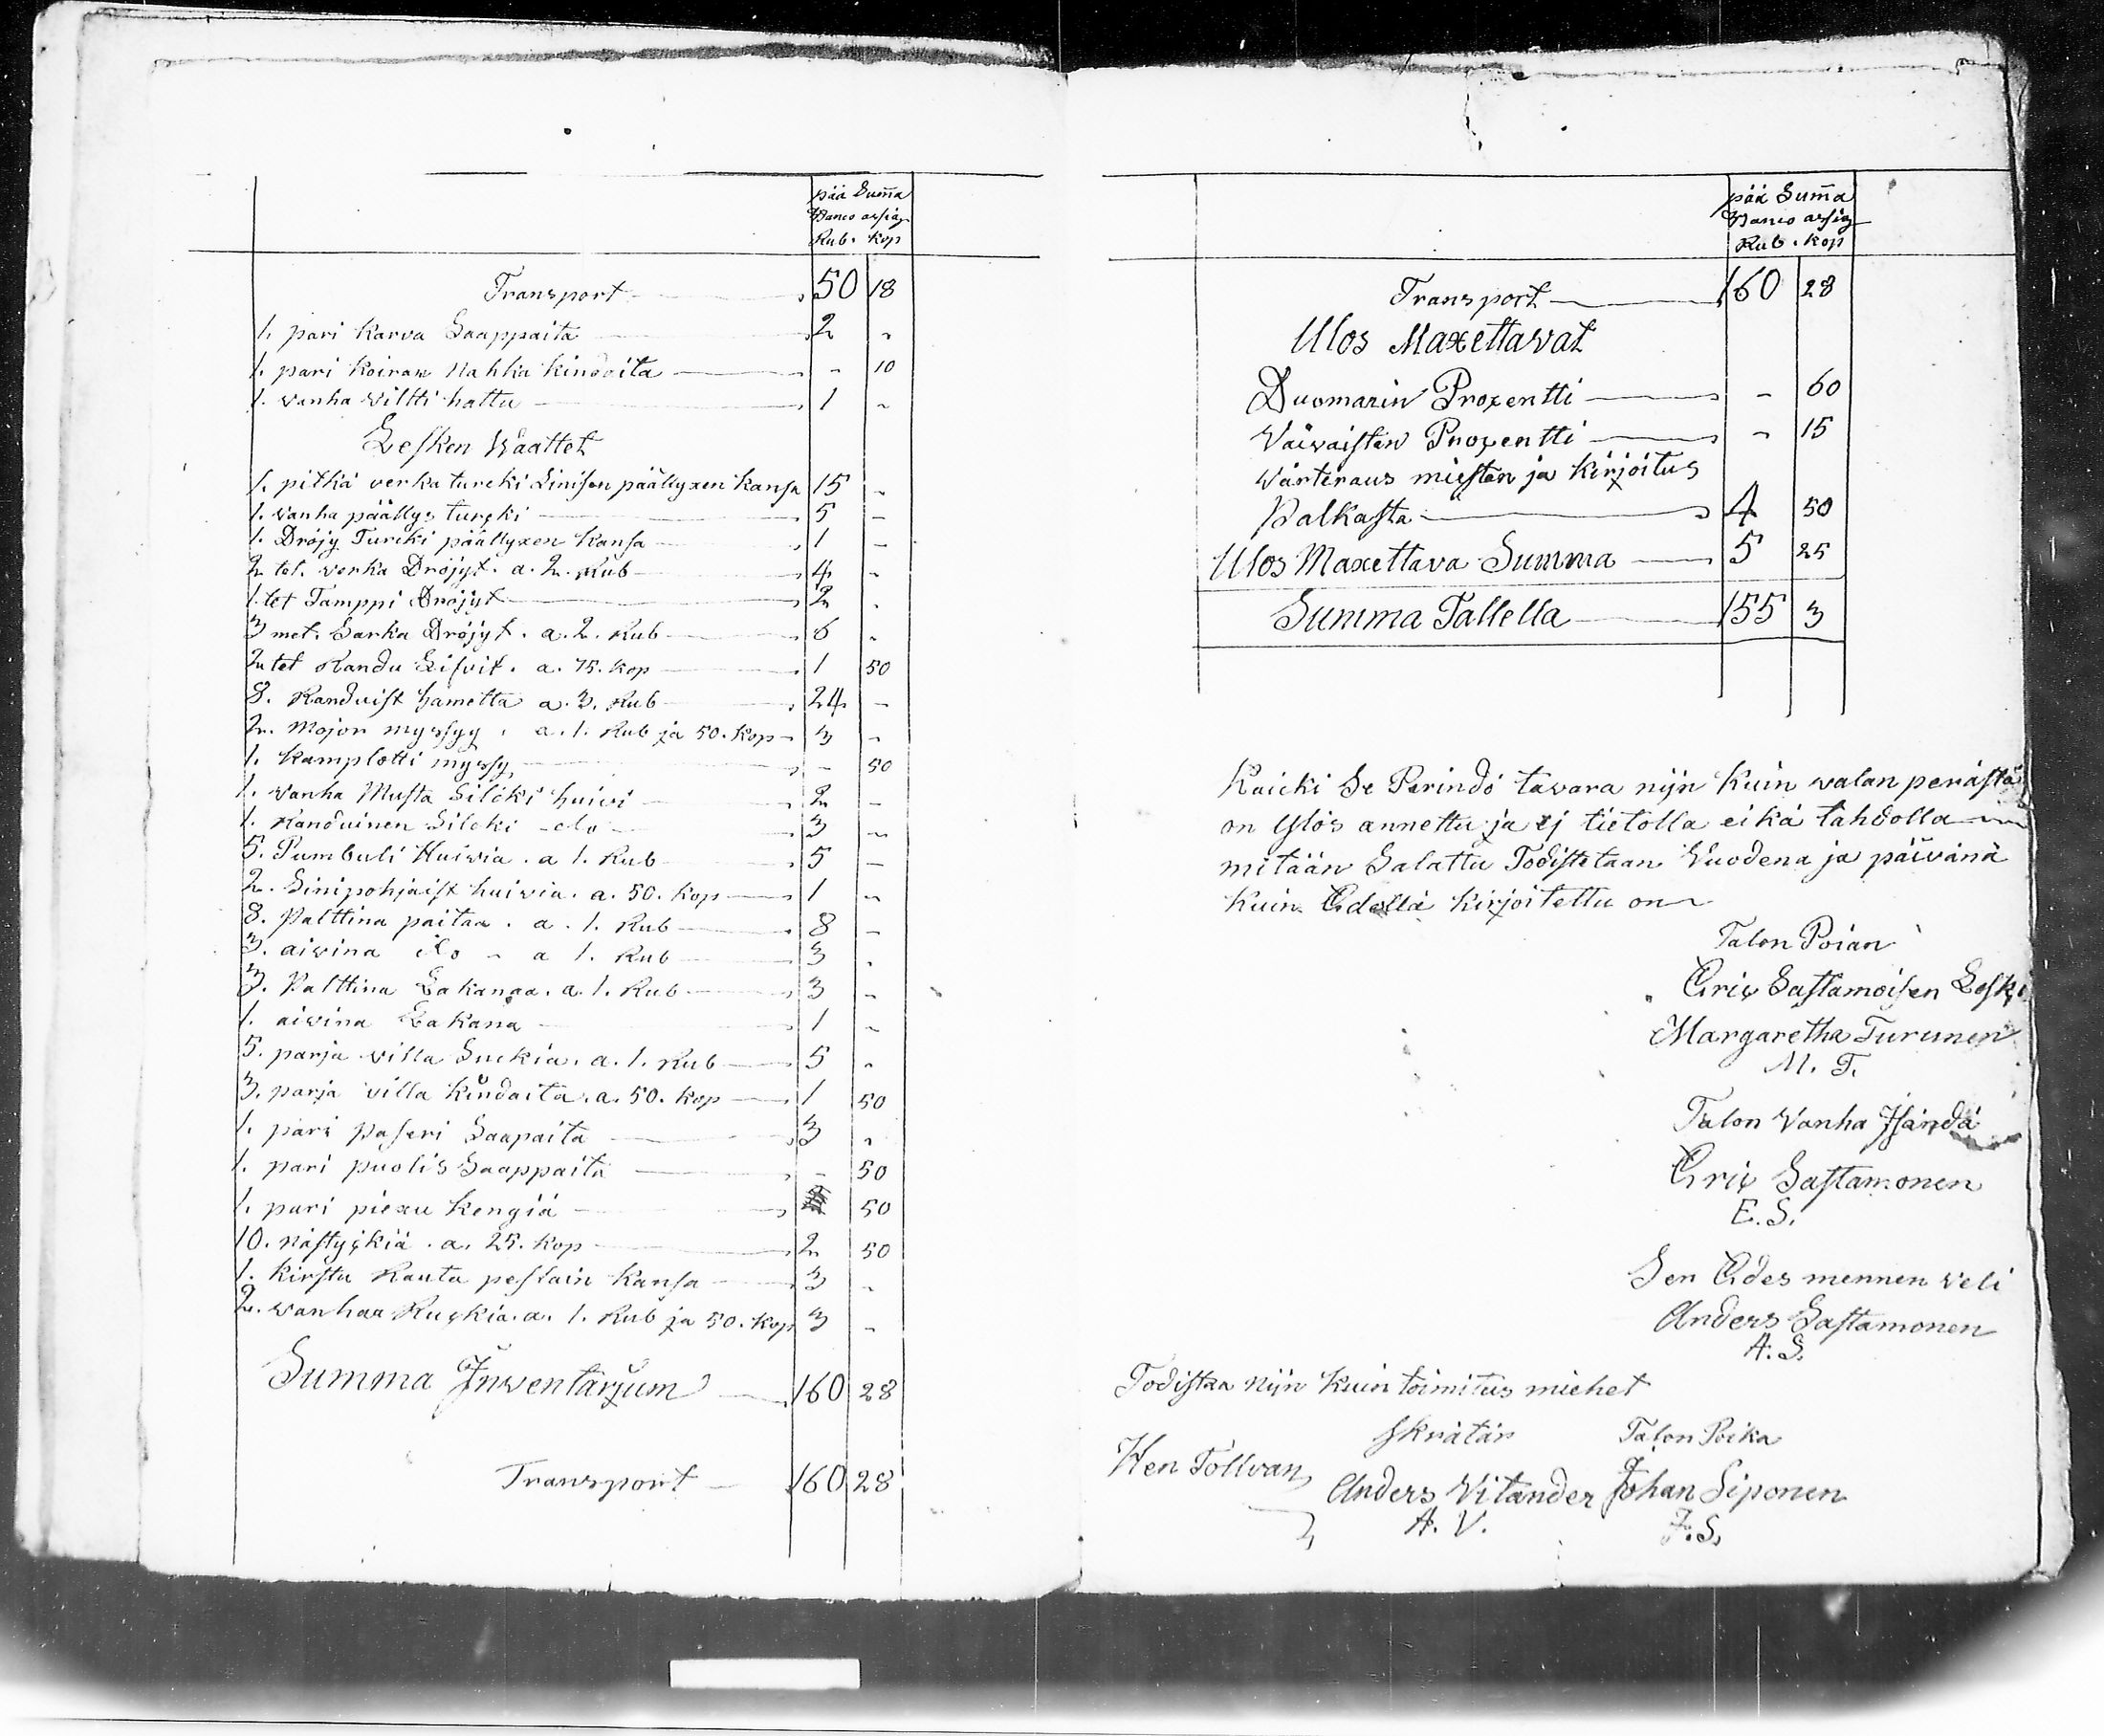 pää Sum̅a
Banco assig
Rub. kop
Transport 50 18
1. pari Karva Saappaita 2 -
1. pari Koiran Nahka kindaita - 10
1. wanha wiltti hattu 1 -
Lesken Waattet
1. pitkä verka turcki Sinisen päällyxen kansa 15 -
1. wanha päällys turcki 5 -
1. Dröjy Turcki päällyxen kansa 1 -
2 tet. verka Dröjyt. a. 2. Rub 4 -
1. tet Tamppi Dröjyt 2 -
3 met. Sarka Dröjyt. a. 2. Rub 6 -
2 tet Randu Lifvit. a. 75. kop 1 50
8. Randuist hametta a. 3. Rub 24 -
2. Mojon myssyy. a. 1. Rub ja 50. kop 3 -
1. Kamplotti myssy - 50
1. wanha Musta Silcki huivi 2 -
1. Randuinen Silcki -do- 3 -
5. Pumbuli Huivia. a 1. Rub 5 -
2. Sinipohjaist huivia. a. 50. kop 1 -
8. Palttina paitaa. a. 1. Rub 8 -
3. aivina do - a 1. Rub 3 -
3. Palttina Lakanaa. a. 1. Rub 3 -
1. aivina Lakana 1 -
5. parja villa Suckia. a. 1. Rub 5 -
3. parja villa Kindaita. a. 50. kop 1 50
1. pari Paseri Saapaita 3 -
1. pari puolis Saappaita - 50
1. pari piexu Kengiä 50
10. nästyckiä. a. 25. kop 2 50
1. Kirstu Rauta pestain Kansa 3 -
2. wanhaa Ruckia. a. 1. Rub ja 50. kop 3 -
Summa Inwentarjum 160 28
Transport 160 28
pää Sum̅a
Banco assig
Rub. kop
Transport 160 28
Ulos Maxettavat
Duomarin Procentti - 60
Vaivaisten Procentti - 15
Värteraus miesten ja Kirjoitus
Palkasta 4 50
Ulos Maxettava Summa 5 25
Summa Tallella 155 3
Kaicki Se Perindö tavara nijn Kuin walan perästä
on ylös annettu ja ej tietolla eikä tahdolla
mitään Salattu Todistetaan Vuodena ja päivänä
Kuin Edellä kirjoitettu on
Talon Poian
Eric Sastamoisen Leski
Margaretha Turunen
M. T.
Talon Vanha Isändä
Eric Sastamonen
E. S.
Sen Edes mennen veli
Anders Sastamonen
A. S.
Todistaa Nijn Kuin toimitus miehet
Skrätär Talon Poika
Hen Tollvan
Anders Vitander Johan Siponen
A. V. J. S.